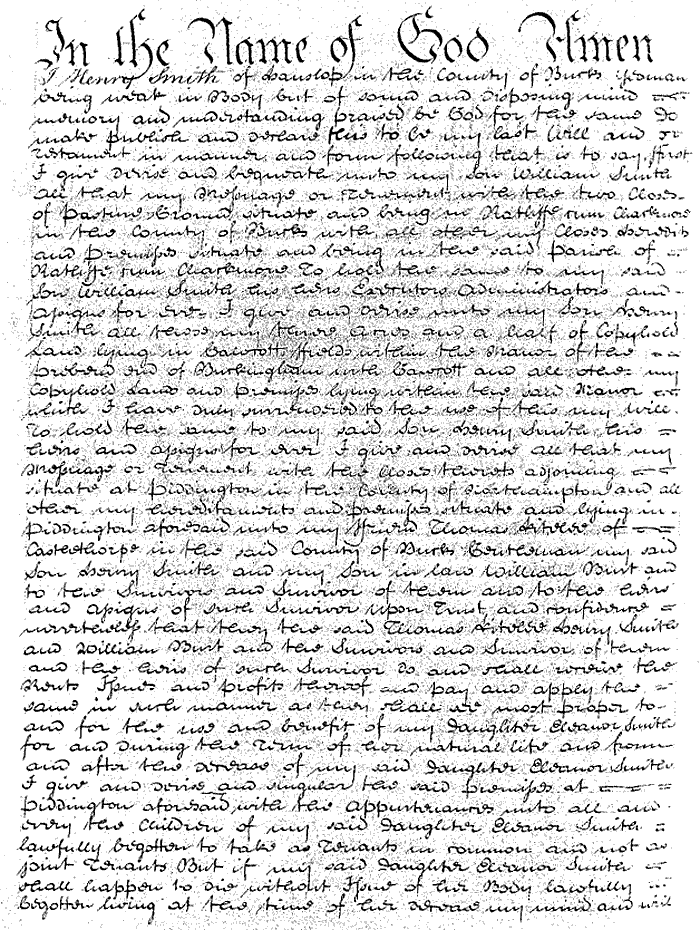 In the Name of God Amen
I Henry Smith of Hanslop in the County of Bucks Yeoman
being weak in Body but of sound and disposing mind
memory and understanding praised be God for the same Do
make publish and declare this to be my last Will and or
Testament in manner and form following that is to say, ffirst
I give devise and bequeath unto my son William Smith
all that my Messuage or Tenement with the two Closes
of Pasture Ground situate and being in Ratliffe cum Chackmore
in the County of Bucks with all other my Closes heredits
and premises situate and being in the said Parish of
Ratliffe cum Chackmore To hold the same to my said
Son William Smith his heirs Executors Administrators and
Assigns for ever I give and devise unto my Son Henry
Smith all those my three Acres and a half of Copyhold
Land lying in Gawcott ffields within the Manor of the
prebend end of Buckingham with Gawcott and all other my
Copyhold Lands and premises lying within the said Manor
which I have duly surrendered to the use of this my will
To hold the same to my said Son Henry Smith his
heirs and assigns for ever I give and devise all that my
Messuage or Tenement with the Closes thereto adjoining
situate at Piddington in the County of Northampton and all
other my hereditaments and premises situate and lying in
Piddington aforesaid unto my ffriend Thomas of
Castlethorpe in the said County of Bucks Gentleman my said
Son Henry Smith and my Son in law William Burt and
to the Survivors and Survivor of them and to the heirs
and assigns of such Survivor upon Trust and confidence
nevertheless that they the said Thomas Henry Smith
and William Burt and the Survivors and Survivor of them
and the heirs of such Survivor do and shall receive the
Rents Issues and profits thereof and pay and apply the
same in such manner as they shall see most proper to
and for the use and benefit of my Daughter Eleanor Smith
for and during the Term of her natural life and from
and after the decease of my said Daughter Eleanor Smith
I give and devise and singular the said premises at
Piddington aforesaid with the appurtenances unto all and
every the Children of my said Daughter Eleanor Smith
lawfully begotten to take as Tenants in common and not as
joint Tenants But if my said Daughter Eleanor Smith
shall happen to die without Issue of her Body lawfully
begotten living at the time of her decease my mind and will